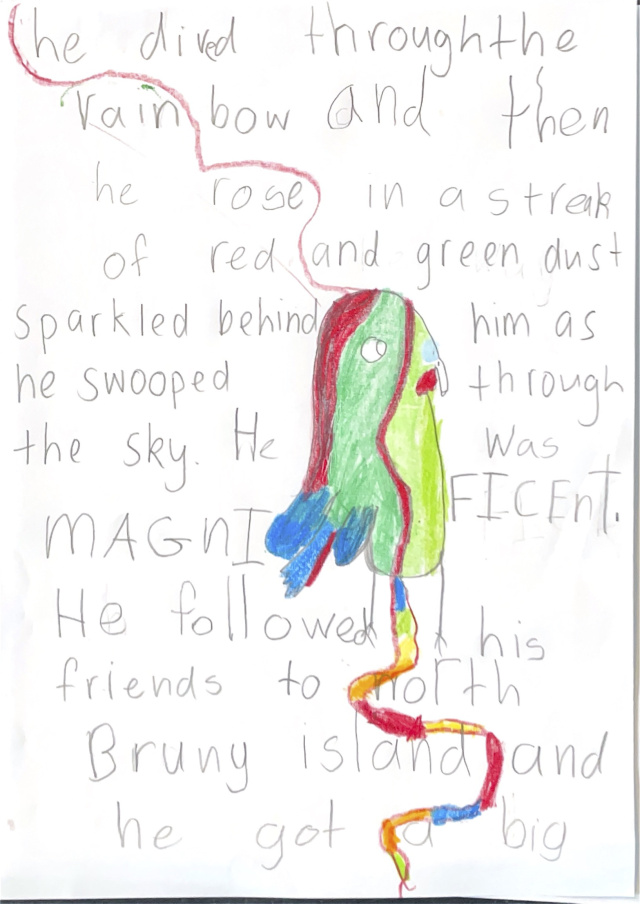 he dived throughthe
rain bow and then
he rose in a streak
of red and green dust
sparkled behind him as
he swooped through
the sky. He was
MAGnIFICEnT.
He followed his
friends to north
Bruny island and
he got a big